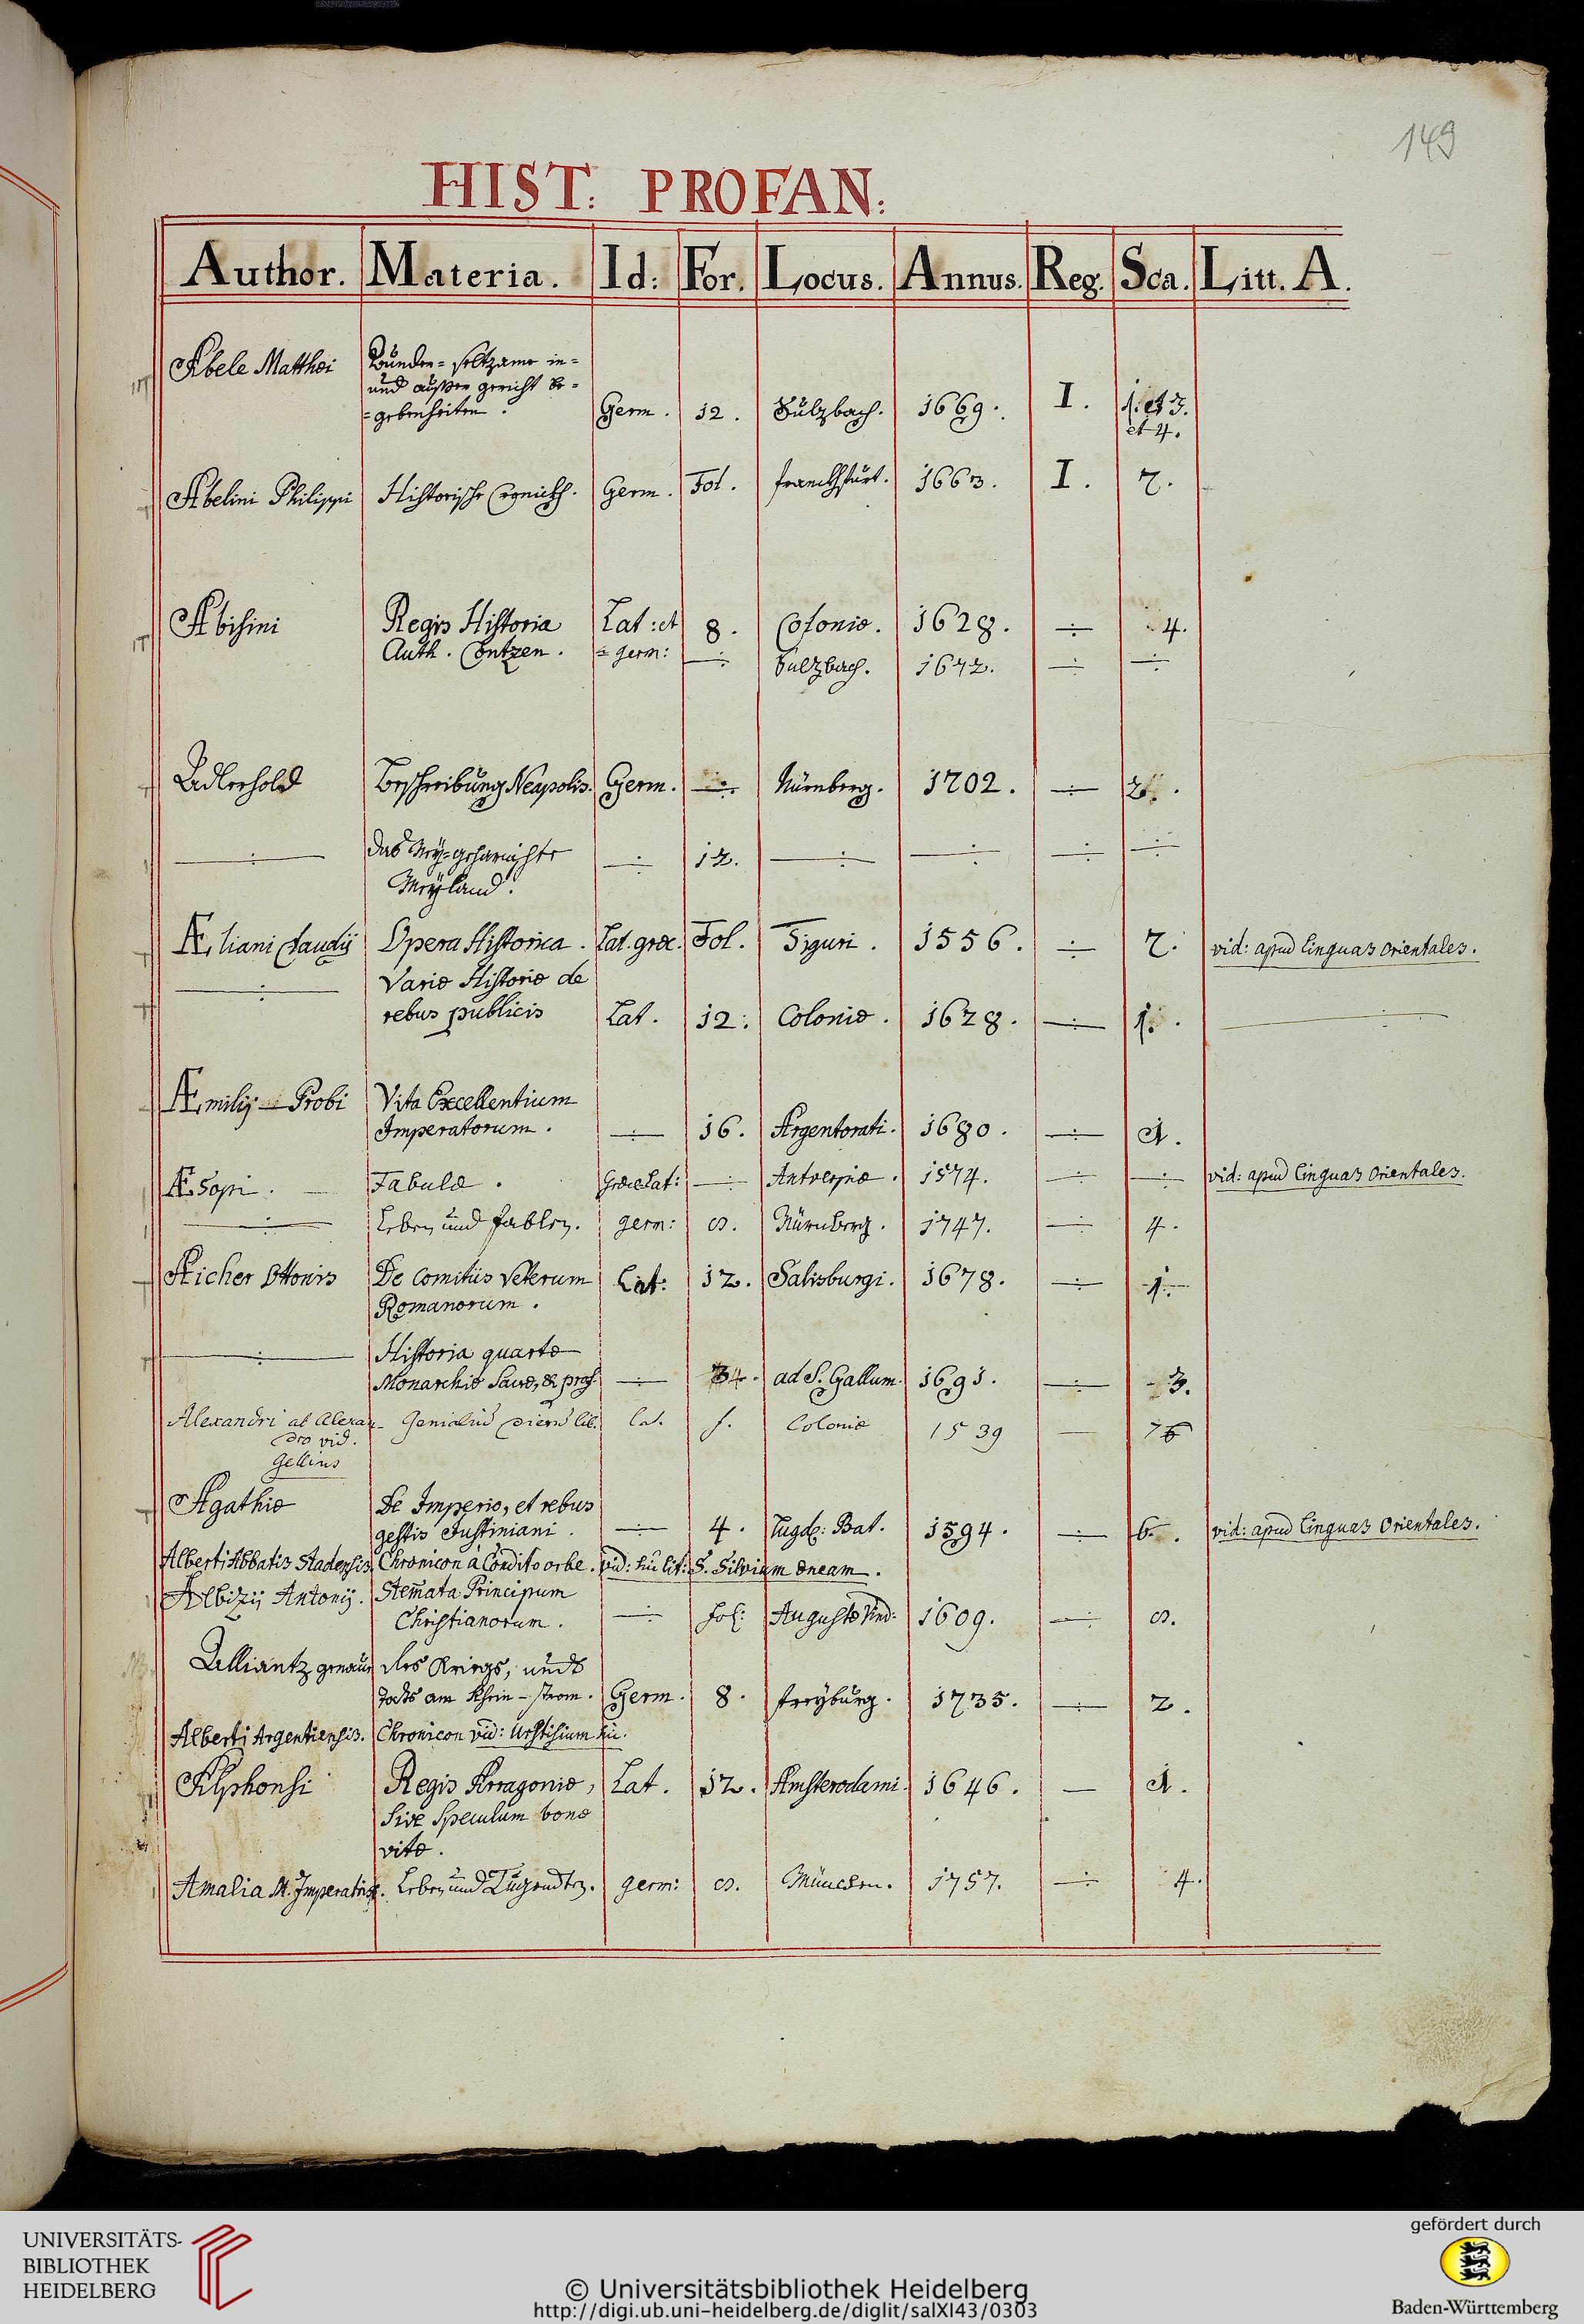 149
HIST: PROFAN:
Author. Materia. Id: For. Locus. Annus. Reg. Sca. Litt. A.
Abele Matthæi Wunder= seltzame in=
und außer gericht be=
=gebenheiten. Germ. 12. Sulzbach. 1669. I. 1. et 3.
et 4.
Abelini Philippi Historische Cronickh. Germ. Fol. franckhfurt. 1663. I. 2.
Abisini Regis Historia Lat: et 8. Coloniæ. 1628. ÷ 4.
Auth. Contzen. = germ: ÷ Sulzbach. 1672. ÷ ÷
Adlerhold Beschreibung Neapolis. Germ. ÷ Nürnberg. 1702. ÷ 2.
÷ das Ney=geharnischte ÷ 12. ÷ ÷ ÷ ÷
Meyland.
Æliani Claudij Opera Historica. Lat. græc. Fol. Tiguri. 1556. ÷ 2. vid: apud linguas orientales.
÷ Variæ Historiæ de
rebus publicis Lat. 12: Coloniæ. 1628. ÷ 1. ÷
Æmilij — Probi Vita Excellentium
Imperatorum. ÷ 16. Argentorati. 1680. ÷ 1.
Æsopi. Fabulæ. Græc Lat: ÷ Antverpiæ. 1574. ÷ ÷ vid: apud linguas orientales.
÷ Leben und fablen. germ: 8. Nürnberg. 1747. ÷ 4.
Aicher Ottonis De Comitiis Veterum Lat: 12. Salisburgi. 1678. ÷ 1.
Romanorum.
÷ Historia quartæ
Monarchiæ Sacræ, & prof. ÷ 4. ad S. Gallum. 1691. ÷ 3.
Alexandri ab Alexan- Genialiū dierū lib. lat. f. Coloniæ 1539 —
dro vid.
Gellius
Agathiæ De Imperio, et rebus
gestis Justiniani. ÷ 4. Lugd: Bat. 1594. ÷ 6. vid: apud linguas orientales.
Alberti Abbatis Stadensis. Chronicon à Condito orbe. vid: hic lit: S. Silvium Æneam.
Albizij Antonij. Stemata Principum
Christianorum. ÷ fol: Augustæ Vind: 1609. ÷ 8.
Alliantz genaue des Kriegs, undt
Todts am Rhein-strom. Germ. 8. freyburg. 1735. ÷ 2.
Alberti Argentiensis. Chronicon vid: Urstisium hic.
Alphonsi Regis Arragoniæ, Lat. 12. Amsterodami. 1646. — 1.
sive Speculum bonæ
vitæ.
Amalia M. Imperatrix. Leben und Tugendten. germ: 8. München. 1757. ÷ 4.
UNIVERSITÄTS-
BIBLIOTHEK
HEIDELBERG
© Universitätsbibliothek Heidelberg
http://digi.ub.uni-heidelberg.de/diglit/salXI43/0303
gefördert durch
Baden-Württemberg